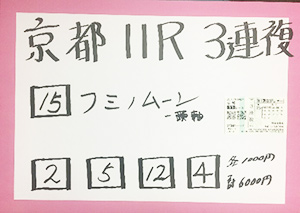 京都11R 3連複
15 フミノムーン
一頭軸
2 5 12 4
各1000円
計6000円